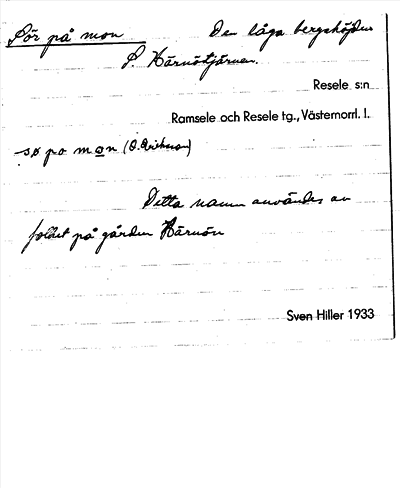 Sör på mon Den låga bergshöjden
S. Härnötjärnen.
Resele s:n
Ramsele och Resele tg., Västernorrl. l.
sø po mon (O. Erikson)
Detta namn användes av
folket på gården Härnön
Sven Hiller 1933